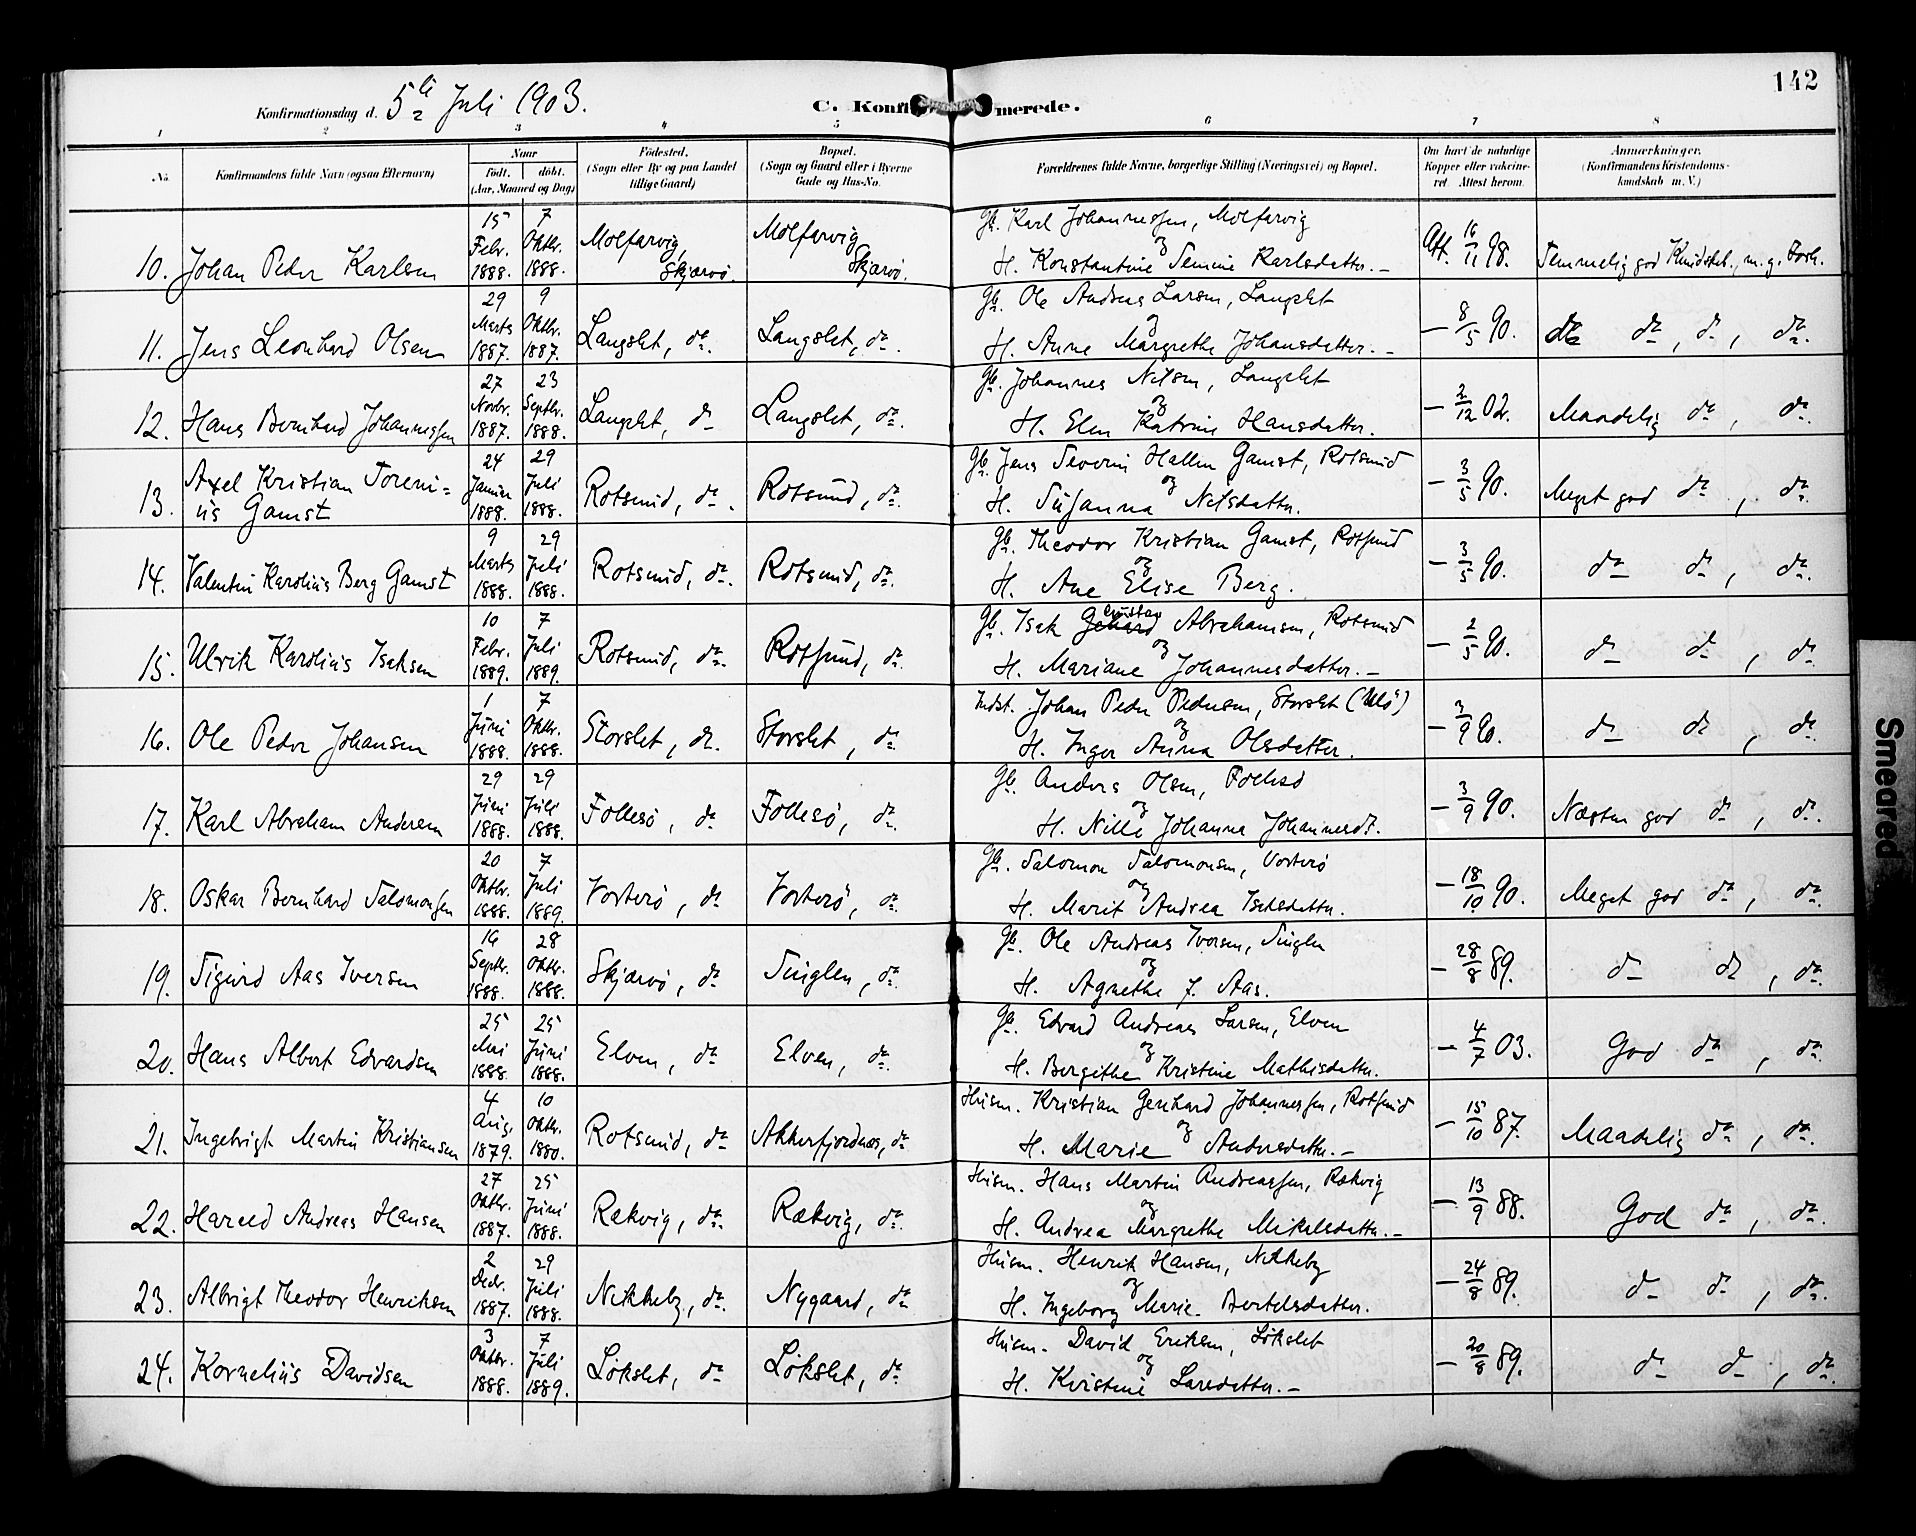 142
Konfirmationsdag d. 5te Juli 1903.
C. Konfirmerede.
1 2 3 4 5 6 7 8
No. Konfirmandens fulde Navn (ogsaa Efternavn) Naar født. døbt. (Aar, Maaned og Dag) Fødested. (Sogn eller By og paa Landet tillige Gaard) Bopæl. (Sogn og Gaard eller i Byerne Gade og Hus-No. Forældrenes fulde Navne, borgerlige Stilling (Næringsvei) og Bopæl. Om havt de naturlige Kopper eller vakcineret. Attest herom. Anmærkninger. (Konfirmandens Kristendomskundskab m. V.)
10. Johan Peder Karlsen 15 Febr. 1888. 7 Oktbr. 1888. Molfarvig, Skjærvö. Molfarvig Skjærvö. Gb. Karl Johannessen, Molfarvig og H. Konstantine Karlsdatter.- Att. 16/11 98. Temmelig god Kundskab., m. g. Forh.
11. Jens Leonhard Olsen 29 Marts 1887. 9 Oktbr. 1887. Langslet, do. Langslet, do. Gb. Ole Andreas Larsen, Langslet og H. Anne Margrethe Johansdatter.- - 8/5 90. do do, do, do.
12. Hans Bernhard Johannessen 27 Novbr. 1887. 23 Septbr. 1888. Langslet, do Langslet, do. Gb. Johannes Nilsen, Langslet og H. Elen Katrine Hansdatter. - 2/12 02. Maadelig do, do.
13. Axel Kristian Toreni=us Gamst 24 Januar 1888. 29 Juli 1888. Rotsund, do. Rotsund, do. Gb. Jens Severin Hallen Gamst, Rotsund og H. Susanna Nilsdatter. - 3/5 90. Meget god do, do.
14. Valentin Karolius Berg Gamst 9 Marts 1888. 29 Juli 1888. Rotsund, do. Rotsund, do. Gb. Theodor Kristian Gamst, Rotsund og H. Ane Elise Berg. - 3/5 90. do do, do.
15. Ulrik Karolius Isaksen 10 Febr. 1889. 7 Juli 1889. Rotsund, do. Rotsund, do. Gb. Isak Gustav Abrahamsen, Rotsund og H. Mariane Johannesdatter.- - 2/5 90. do do, do
16. Ole Peder Johansen 1 Juni 1888. 7 Oktbr. 1888. Storslet, do. Storslet, do Indst. Johan Peder Pedersen, Storslet (Ulö) og H. Inger Anna Olsdatter. - 3/9 90. do do, do
17. Karl Abraham Andersen 29 Juni 1888. 29 Juli 1888. Follesö, do Follesö, do. Gb. Anders Olsen, Follesö og H. Nille Johanna Johannesdt. - 3/9 90. Næsten god do, do.
18. Oskar Bernhard Salomonsen 20 Oktbr. 1888. 7 Juli 1889. Vorterö, do Vorterö, do. Gb. Salomon Salomonsen, Vorterö og H. Marit Andrea Isaksdatter. - 18/10 90. Meget god do, do.
19. Sigurd Aas Iversen 16 Septbr. 1888. 28 Oktbr. 1888. Skjærvö, do Singlen, do. Gb. Ole Andreas Iversen, Singlen og H. Agnethe J. Aas. - 28/8 89. do do, do.
20. Hans Albert Edvardsen 25 Mai 1888. 25 Juni 1888. Elven, do Elven, do. Gb. Edvard Andreas Larsen, Elven og H. Bergithe Kristine Mathisdatter. - 4/7 03. God do, do.
21. Ingebrigt Martin Kristiansen 4 Aug. 1879. 10 Oktbr. 1880. Rotsund, do Akkerfjordnæs, do Husm. Kristian Gerhard Johannessen, Rotsund og H. Marie Andersdatter.- - 15/10 87. Maadelig do, do.
22. Hareld Andreas Hansen 27 Oktbr. 1887. 25 Juni 1888. Rækvig, do. Rækvig, do. Husm. Hans Martin Andreassen, Rækvig og H. Andrea Margrethe Mikkelsdatter.- - 13/9 88. God do, do.
23. Albrigt Theodor Henriksen 2 Decbr. 1887. 29 Juli 1888. Nikkeby, do. Nygaard, do Husm. Henrik Hansen, Nikkeby og H. Ingeborg Marie Bertelsdatter. - 24/8 89. do do, do.
24. Kornelius Davidsen 3 Oktbr. 1888. 7 Juli 1889. Løkslet, do Løkslet, do. Husm. David Eriksen, Løkslet og H. Kristine Larsdatter.- - 20/8 89. do do, do.
Smeared